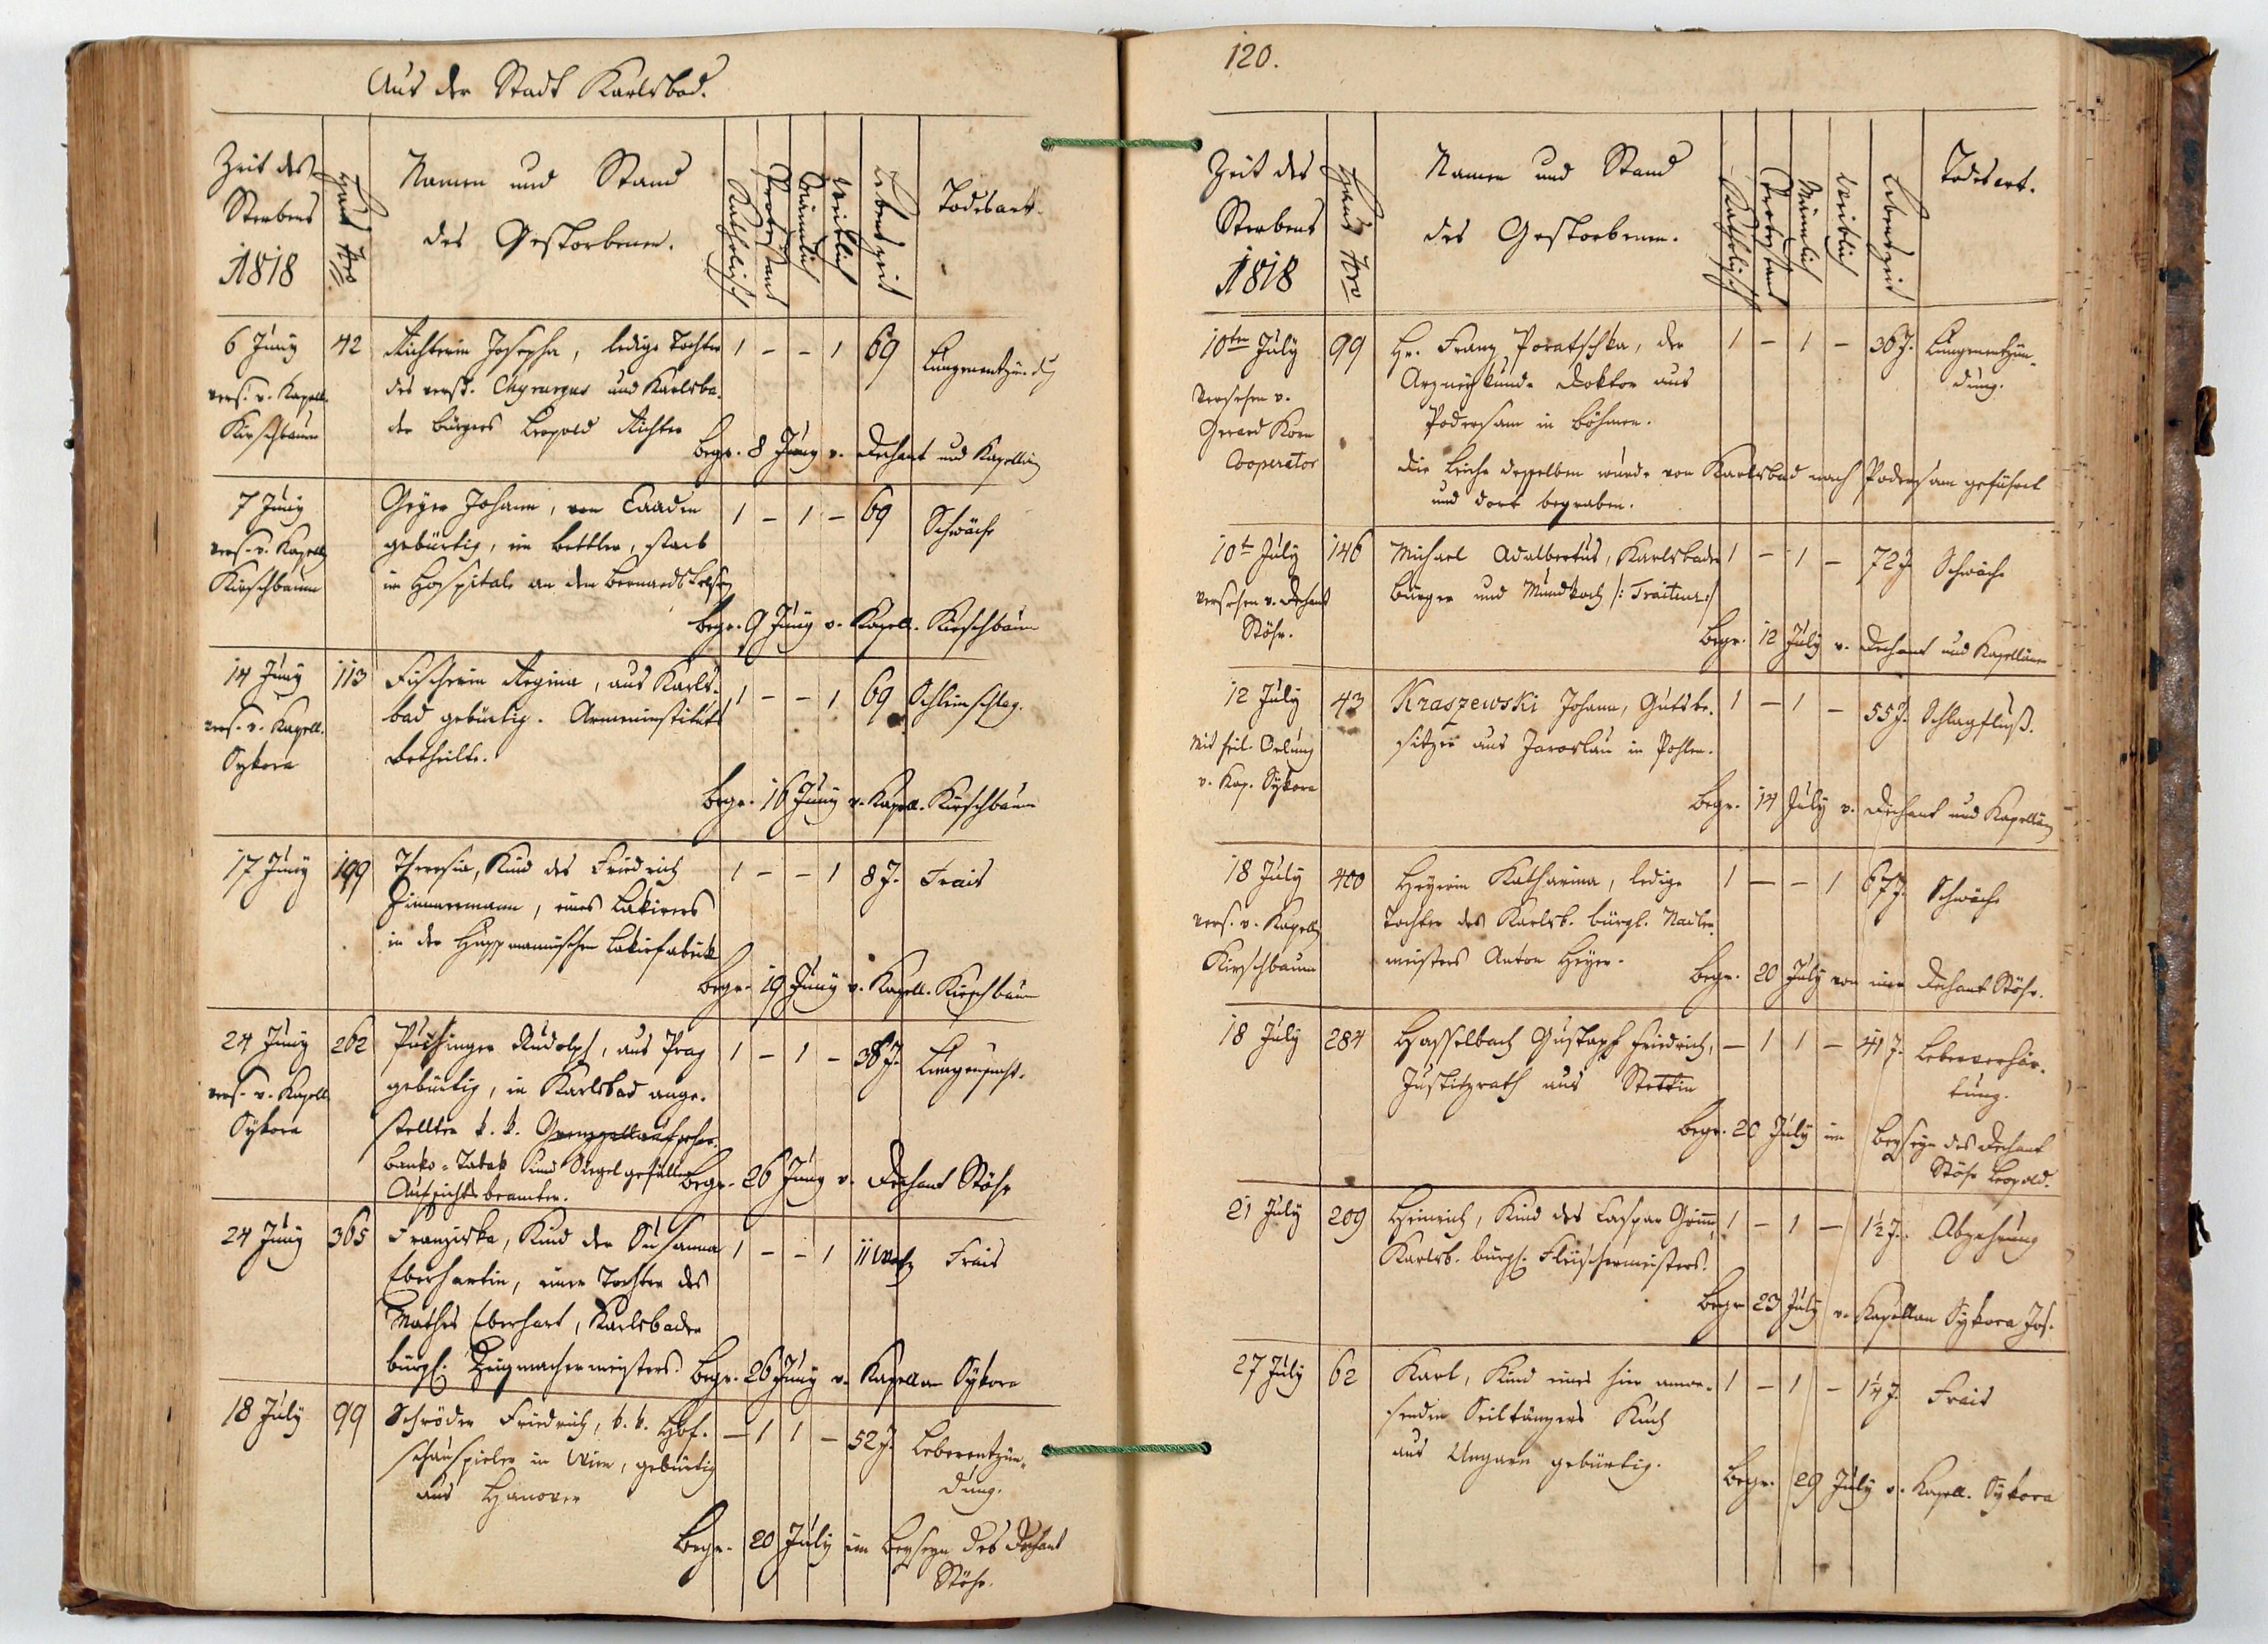 Aus der Stadt Karlsbad.
Zeit des
Sterbens
1818
Haus Nro
Namen und Stand
des Gestorbenen.
Katholisch
Protestant
Männlich
Weiblich
Lebenszeit
Todesart.
6 Juny 42 Richterin Josepha, ledige Tochter 1 - - 1 69 Lungenentzündg
vers. v. Kapell. des verst. Chyrurgus und Karlsba-
Kirschbaum der bürgers Leopold Richter
begr. 8 Juny v. Dechant und Kapellän
7 Juny Geyer Johann, von Caaden 1 - 1 - 69 Schwäche
vers. v. Kapell gebürtig, ein bettler, starb
Kirschbaum im Hospitale an dem Bernardsfelsen
begr. 9 Juny v. Kapell. Kirschbaum
14 Juny 113 Fischerin Regina, aus Karls- 1 - - 1 69 Schleimschlag.
vers. v. Kapell. bad gebürtig. Armeninstituts
Sykora betheilte.
begr. 16 Juny v. Kapell. Kirschbaum
17 Juny 199 Theresia, Kind des Friedrich 1 - - 1 8 J. Frais
Zimmermann, eines Lakirers
in der Lakirfabrik
begr. 19 Juny v. Kapell. Kirschbaum
24 Juny 262 Rudolph, aus Prag 1 - 1 - 38 J. Lungensucht.
vers. v. Kapell gebürtig, in Karlsbad ange-
Sykora stellter k. k. Grenzzollaufseher.
Banko-Tabak und Siegelgefällen begr. 26 Juny v. Dechant Stöhr
Aufsichtsbeamter.
24 Juny 365 Franziska, Kind der Susanna 1 - - 1 11 Frais
Eberhartin, einer Tochter des
Mathes Eberhart, Karlsbader
bürgl. Zeugmachermeisters. begr. 26 Juny v. Kapellan Sykora
18 July 99 Schröder Friedrich, k. k. Hof- - 1 1 - 52 J. Leberentzün-
schauspieler in Wien, gebürtig dung.
aus Hanover
begr. 20 July im beyseyn des Dechant
Stöhr.
120.
Zeit des
Sterbens
1818
Haus Nro
Namen und Stand
des Gestorbenen.
Katholisch
Protestant
Männlich
Weiblich
Lebenszeit
Todesart.
10ten July 99 Hr. Franz Poratschka, der 1 - 1 - 36 J. Lungenentzün-
Versehen v. Arzneykunde Doktor aus dung.
Gerard Korn Podersam in böhmen.
Cooperator die Leiche desselben wurde von Karlsbad nach Podersam geführt
und dort begraben.
10t July 146 Michael Adalbertus, Karlsbader 1 - 1 - 72 J. Schwäche
versehen v. Dechant bürger und Mundkoch /: Traiteur :/
Stöhr.
begr. 12 July v. Dechant und Kapellänen
12 July 43 Kraszewski Johann, Gutsbe- 1 - 1 - 55 J. Schlagfluß.
Mit heil. Oelung sitzer aus Jaroslau in Pohlen.
v. Kap. Sykora
begr. 14 July v. Dechant und Kapellän
18 July 400 Heyerin Katharina, ledige 1 - - 1 67 J. Schwäche
vers. v. Kapell Tochter des Karlsb. bürgl. Nadler-
Kirschbaum meisters Anton Heyer.
begr. 20 July von mir Dechant Stöhr.
18 July 284 Hasselbach Gustaph Friedrich, - 1 1 - 41 J. Leberverhär-
Justitzrath aus Stettin tung.
begr. 20 July im beyseyn des Dechant
Stöhr Leopold.
21 July 209 Heinrich, Kind des Caspar Grimm, 1 - 1 - 1½ J. Abzehrung
Karlsb. bürgl. Fleischermeisters.
begr. 23 July v. Kapellan Sykora Jos.
27 July 62 Karl, Kind eines hier anwe- 1 - 1 - 1¼ J. Frais
senden Seiltänzers
aus Ungarn gebürtig.
begr. 29 July v. Kapell. Sykora